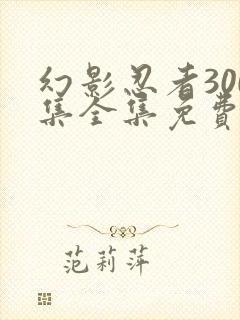 幻影忍者300
集全集免费
范莉萍